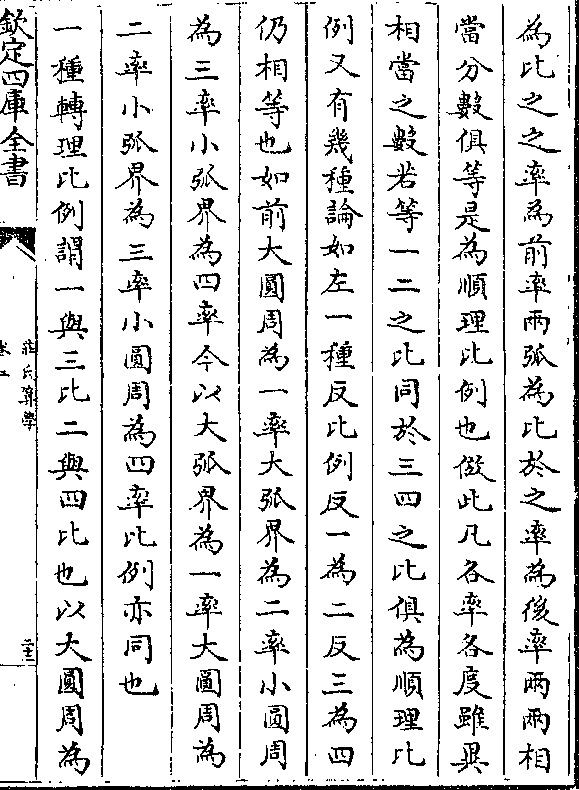 為比之之率為前率兩弧為比於之率為後率兩兩相
當分數俱等是為順理比例也倣此凡各率各度雖異
相當之數若等一二之比同於三四之比俱為順理比
例又有幾種論如左一種反比例反一為二反三為四
仍相等也如前大圓周為一率大弧界為二率小圓周
為三率小弧界為四率今以大弧界為一率大圓周為
二率小弧界為三率小圓周為四率比例亦同也
一種轉理比例謂一與三比二與四比也以大圓周為
欽定四庫全書
莊氏算學
卷二